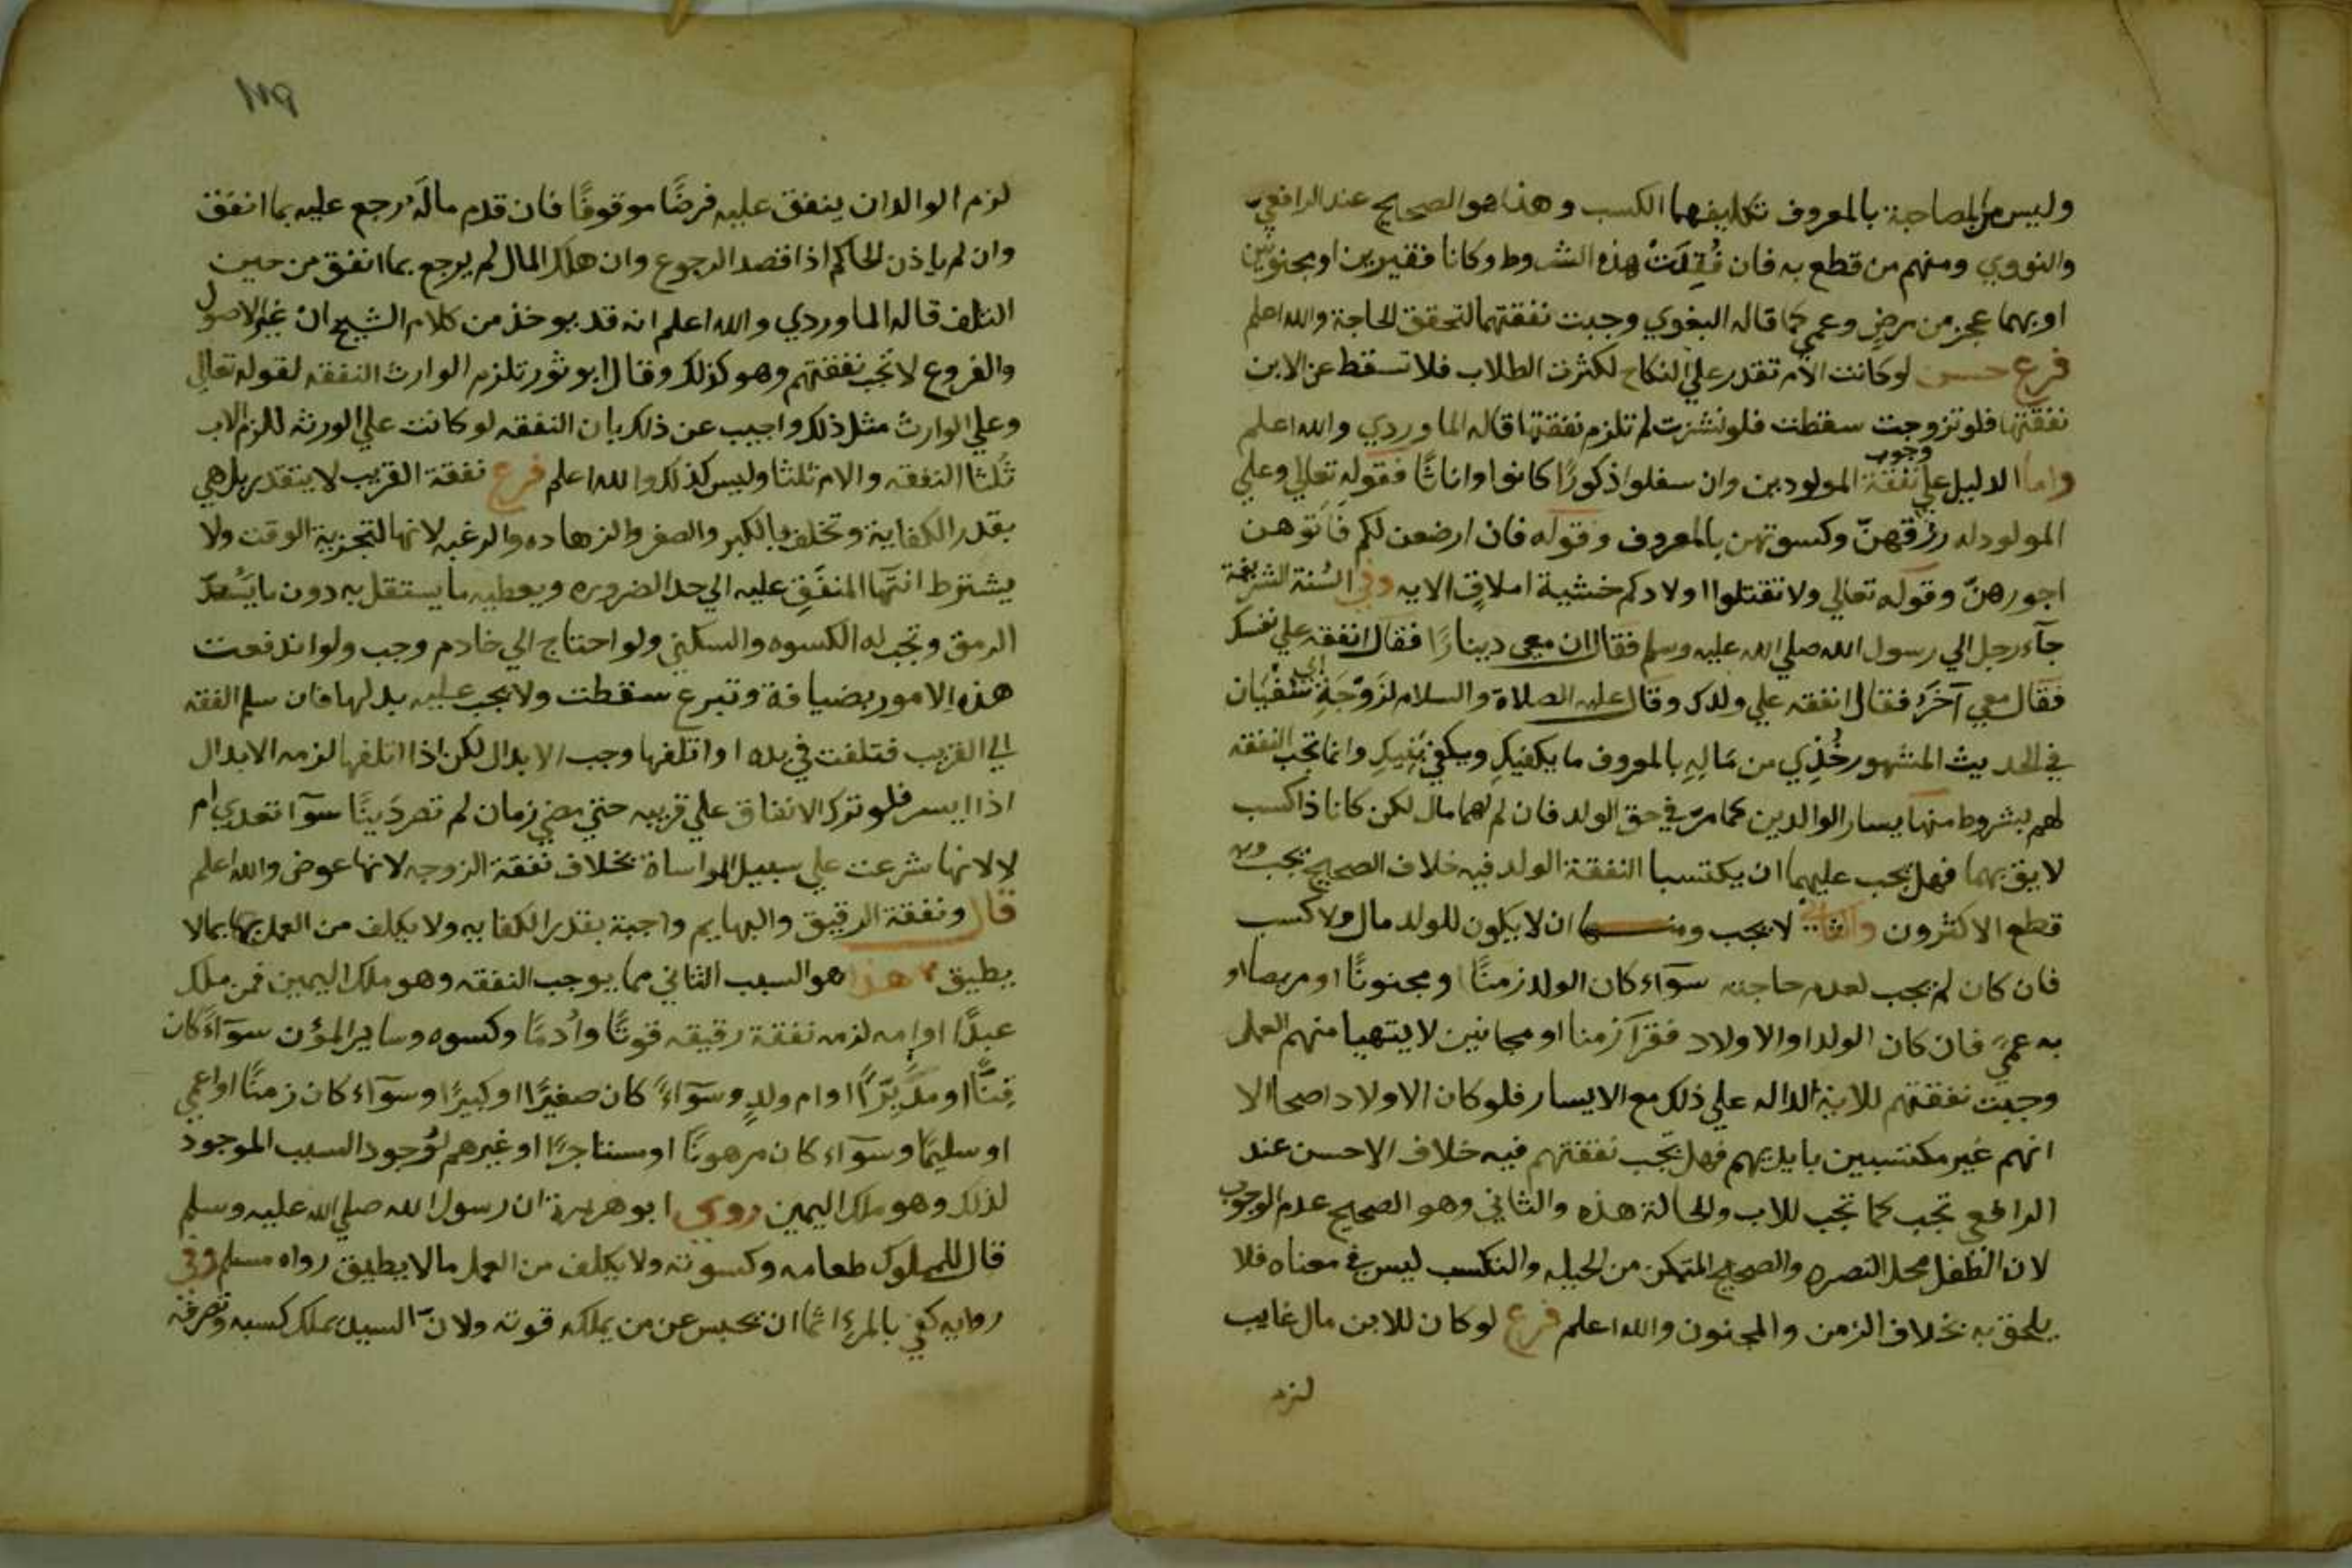 وليس من المصاحبة بالمعروف تكليفهما الكسب وهذا هو الصحيح عند الرافعي
والنووي ومنهم من قطع به فان فُقِدَتْ هذه الشروط وكانا فقيرين او مجنونين
او بهما عجز من مرض وعمي كما قاله البغوي وجبت نفقتهما لتحقق الحاجة والله اعلم
فرع حسن لو كانت الام تقدر علي النكاح لكثرت الطلاب فلا تسقط عن الابن
نفقتها فلو تزوجت سقطت فلو نشزت لم تلزم نفقتها قاله الماوردي والله اعلم
واما الدليل علي وجوب نفقة المولودين وان سفلوا ذكورًا كانوا او اناثًا فقوله تعالي وعلي
المولود له رزقهنّ وكسوتهن بالمعروف وقوله فان ارضعن لكم فَأتوهن
اجورهنّ وقوله تعالي ولا تقتلوا اولادكم خشية املاقٍ الايه وفي السُنة الشريفة
جآء رجل الي رسول الله صلي الله عليه وسلم فقال ان معي دينارًا فقال انفقه علي نفسك
فقال معي آخرَ فقال انفقه علي ولدك وقال عليه الصلاة والسلام لزَوْجَةِ ابي سُفْيَان
في الحديث المشهور خُذِي من مَالِهِ بالمعروف ما يكفيكِ ويكفي بَنِيكِ وانما تجب النفقه
لهم بشروط منها يسار الوالدين كما مرّ في حق الولد فان لم لهما مال لكن كانا ذا كسب
لايق بهما فهل يجب عليهما ان يكتسبا النفقة الولد فيه خلاف الصحيح يجب وبه
قطع الاكثرون والثاني لا يجب ومنها ان لا يكون للولد مال ولا كسب
فان كان لم يجب لعدم حاجته سوآء كان الولد زمنًا او مجنونًا او مريضا او
به عميً فان كان الولد او الاولاد فقرآ زمنا او مجانين لا يتهيا منهم العمل
وجبت نفقتهم للاية الداله علي ذلك مع الايسار فلو كان الاولاد اصحا الا
انهم غير مكتسبين بايديهم فهل تجب نفقتهم فيه خلاف الاحسن عند
الرافعي تجب كما تجب للاب والحالة هذه والثاني وهو الصحيح عدم الوجوب
لان الطفل محل النصره والصحيح المتمكن من الحيله والتكسب ليس في معناه فلا
يلحق به بخلاف الزمن والمجنون والله اعلم فرع لو كان للابن مال غايب
لزم
لزم الوالد ان ينفق عليه فرضًا موقوفًا فان قدم مالَهُ رجع عليه بما انفق
وان لم ياذن الحاكم اذا قصد الرجوع وان هلك المال لم يرجع بما انفق من حين
التلف قاله الماوردي والله اعلم انه قد يوخذ من كلام الشيخ ان غير الاصول
والفروع لا تجب نفقتهم وهو كذلك وقال ابو ثور تلزم الوارث النفقه لقوله تعالي
وعلي الوارث مثل ذلك واجيب عن ذلك بان النفقه لو كانت علي الورثه للزم الاب
ثُلثا النفقه والام ثلثا وليس كذلك والله اعلم فرع نفقة القريب لا يتقدر بل هي
بقدر الكفاية وتخلف بالكبر والصغر والزهاده والرغبه لانها لتجزية الوقت ولا
يشترط انتها المنفَقِ عليه الي حد الضروره ويعطيه ما يستقل به دون ما يَسُدّ
الرمق وتجب له الكسوه والسكني ولو احتاج الي خادم وجب ولو اندفعت
هذه الامور بضيافة وتبرع سقطت ولا يجب عليه بدلها فان سلم الفقه
الي القريب فتلفت في يده او اتلفها وجب الابدال لكن اذا اتلفها لزمه الابدال
اذا ايسر فلو ترك الانفاق علي قريبه حتي مضي زمان لم تصر دَينًا سوآ تعدي ام
لا لانها شرعت علي سبيل المواساة بخلاف نفقة الزوجه لانها عوض والله اعلم
قال ونفقة الرقيق والبهايم واجبة بقدر الكفايه ولا يكلف من العمل بها بما لا
يطيق هذا هو السبب الثاني مما يوجب النفقه وهو ملك اليمين فمن ملك
عبدًا او امه لزمه نفقة رقيقه قوتًا وأدمًا وكسوه وساير المؤن سوآءً كان
قِنًّا او مدَبَّرًا او ام ولدٍ وسوآءً كان صغيرًا او كبيرًا وسوآء كان زمنًا او اعمي
او سليمًا وسوآء كان مرهونًا او مستاجرًا او غيرهم لوُجود السبب الموجود
لذلك وهو ملك اليمين روي ابو هريرة ان رسول الله صلي الله عليه وسلم
قال للمملوك طعامه وكسوته ولا يكلف من العمل ما لا يطيق رواه مسلم وفي
روايه كفي بالمرء اثما ان يحبس عن من يملكه قوته ولانّ السيد يملك كسبه وتصرفه